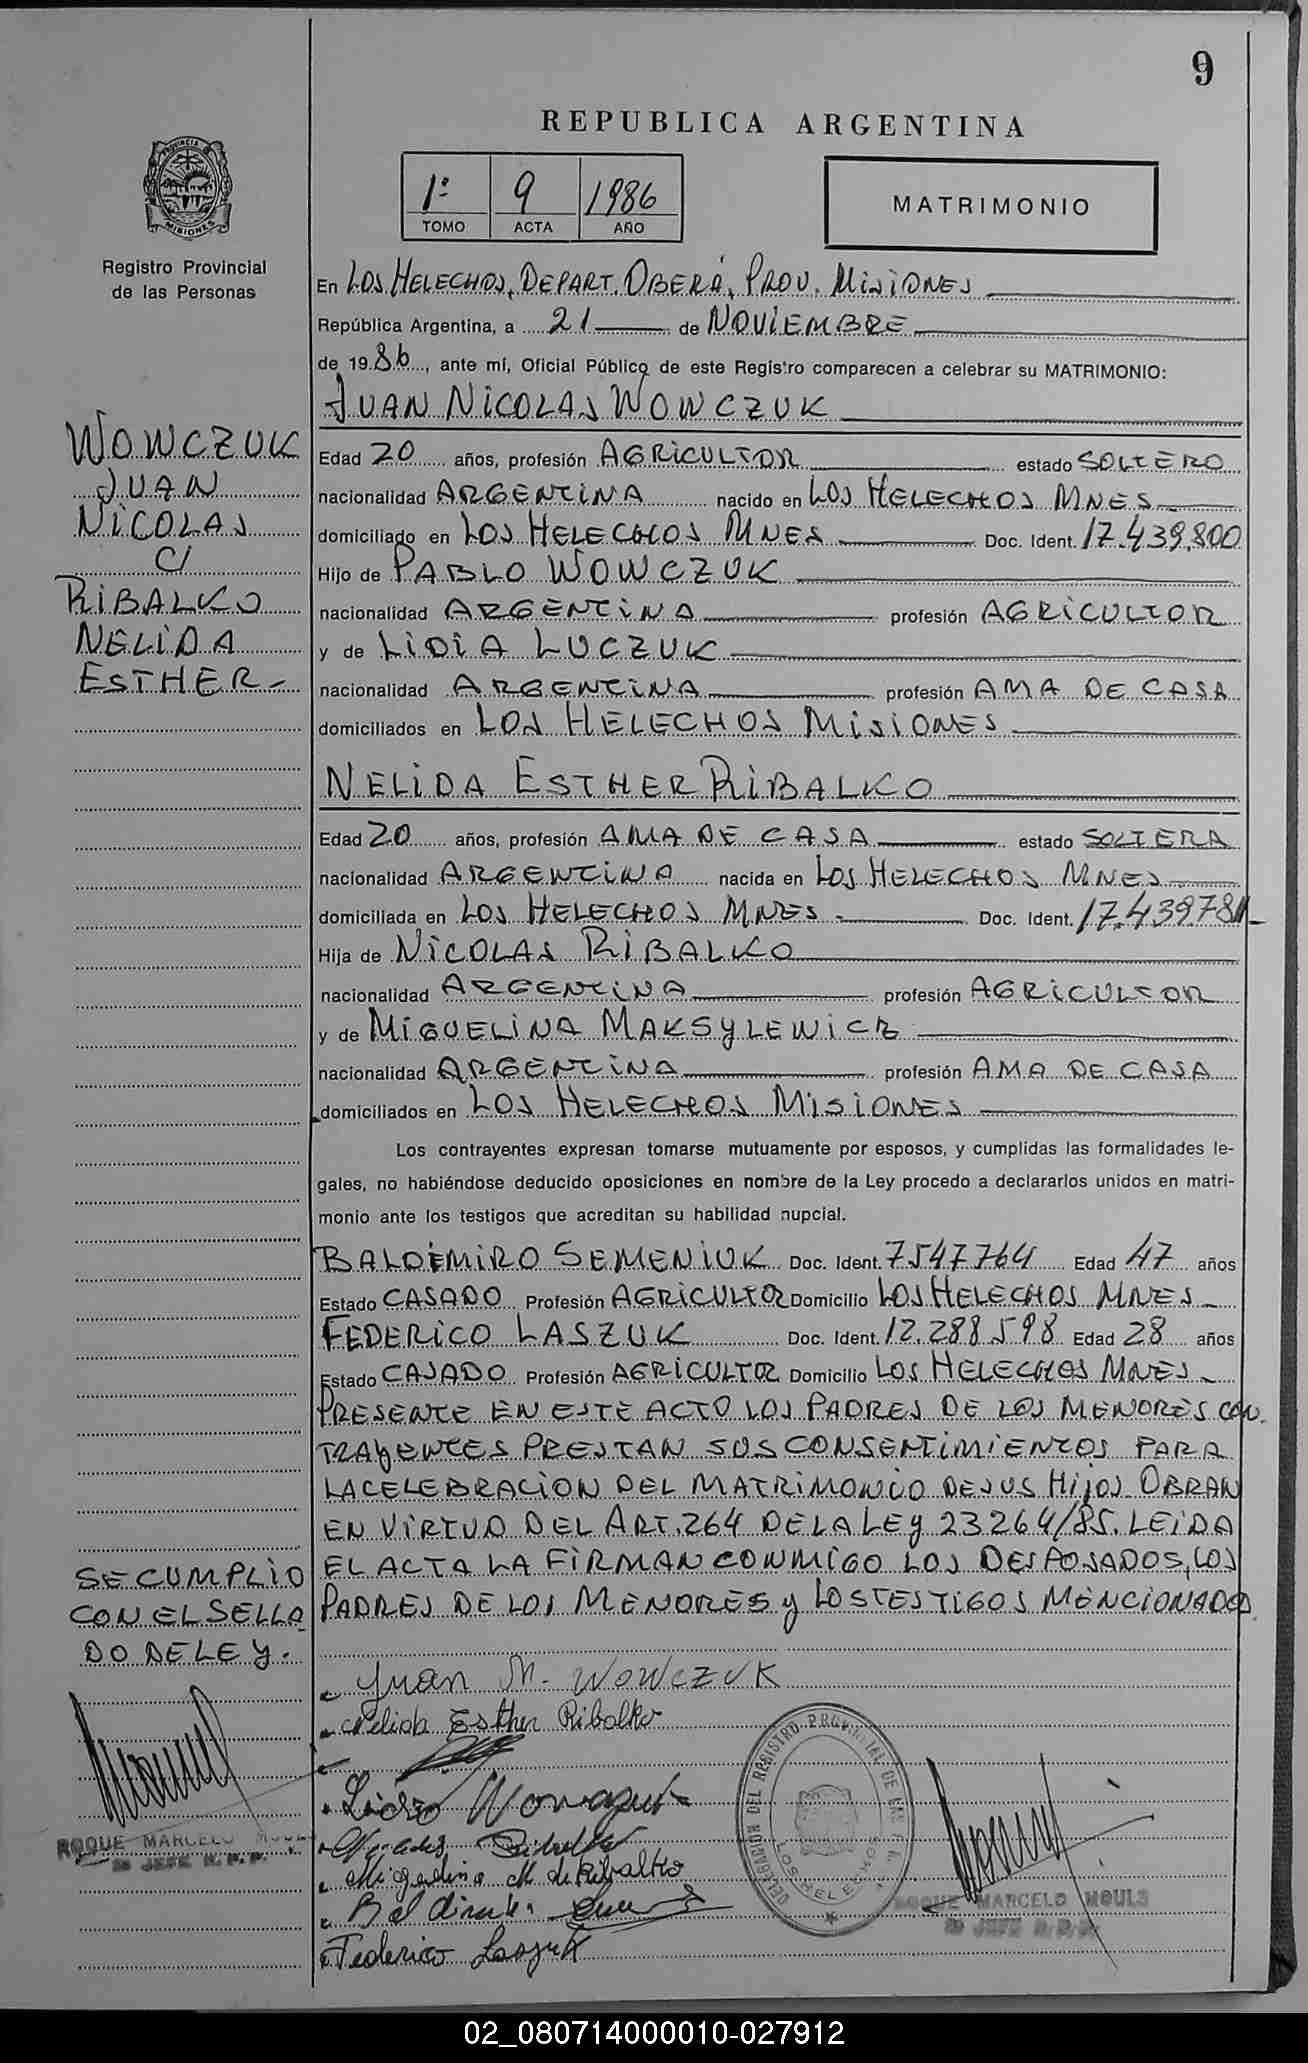 9
REPUBLICA ARGENTINA
1º 9 1986
TOMO ACTA AÑO
MATRIMONIO
PROVINCIA DE
MISIONES
Registro Provincial
de las Personas
En LOS HELECHOS, DEPART. OBERÁ, PROV. MISIONES
República Argentina, a 21 de NOVIEMBRE
de 1986, ante mí, Oficial Público de este Registro comparecen a celebrar su MATRIMONIO:
JUAN NICOLAS WOWCZUK
WOWCZUK
JUAN
NICOLAS
C/
RIBALKO
NELIDA
ESTHER-
Edad 20 años, profesión AGRICULTOR estado SOLTERO
nacionalidad ARGENTINA nacido en LOS HELECHOS MNES
domiciliado en LOS HELECHOS MNES Doc. Ident. 17.439.800
Hijo de PABLO WOWCZUK
nacionalidad ARGENTINA profesión AGRICULTOR
y de LIDIA LUCZUK
nacionalidad ARGENTINA profesión AMA DE CASA
domiciliados en LOS HELECHOS MISIONES
NELIDA ESTHER RIBALKO
Edad 20 años, profesión AMA DE CASA estado SOLTERA
nacionalidad ARGENTINA nacida en LOS HELECHOS MNES
domiciliada en LOS HELECHOS MNES - Doc. Ident. 17.439.781
Hija de NICOLAS RIBALKO
nacionalidad ARGENTINA profesión AGRICULTOR
y de MIGUELINA MAKSYLEWICZ
nacionalidad ARGENTINA profesión AMA DE CASA
domiciliados en LOS HELECHOS MISIONES
Los contrayentes expresan tomarse mutuamente por esposos, y cumplidas las formalidades le-
gales, no habiéndose deducido oposiciones en nombre de la Ley procedo a declararlos unidos en matri-
monio ante los testigos que acreditan su habilidad nupcial.
BALDIMIRO SEMENIUK Doc. Ident. 7547764 Edad 47 años
Estado CASADO Profesión AGRICULTOR Domicilio LOS HELECHOS MNES-
FEDERICO LASZUK Doc. Ident. 12.288.598 Edad 28 años
Estado CASADO Profesión AGRICULTOR Domicilio LOS HELECHOS MNES-
PRESENTE EN ESTE ACTO LOS PADRES DE LOS MENORES CON-
TRAYENTES PRESTAN SUS CONSENTIMIENTOS PARA
LA CELEBRACION DEL MATRIMONIO DE SUS HIJOS OBRAN
EN VIRTUD DEL ART. 264 DE LA LEY 23264/85. LEIDA
EL ACTA LA FIRMAN CONMIGO LOS DESPOSADOS, LOS
PADRES DE LOS MENORES y LOS TESTIGOS MENCIONADOS
SE CUMPLIO
CON EL SELLA
DO DE LEY.
Juan N. WOWCZUK
Nelida Esther Ribalko
Lidia
Ribalko
Miguelina M. de Ribalko
Federico Laszuk
DELEGACION DEL REGISTRO PROVINCIAL DE LAS P.
LOS HELECHOS
ROQUE MARCELO MOULS
JEFE R.P.P.
ROQUE MARCELO MOULS
JEFE R.P.P.
02_080714000010-027912